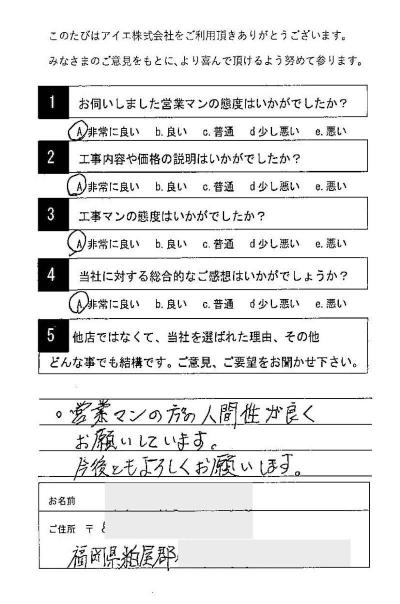 このたびはアイエ株式会社をご利用頂きありがとうございます。
みなさまのご意見をもとに、より喜んで頂けるよう努めて参ります。
1 お伺いしました営業マンの態度はいかがでしたか?
A 非常に良い b.良い c.普通 d 少し悪い e.悪い
2 工事内容や価格の説明はいかがでしたか?
A 非常に良い b.良い c.普通 d 少し悪い e.悪い
3 工事マンの態度はいかがでしたか?
A 非常に良い b.良い c.普通 d 少し悪い e.悪い
4 当社に対する総合的なご感想はいかがでしょうか?
A 非常に良い b.良い c.普通 d 少し悪い e.悪い
5 他店ではなくて、当社を選ばれた理由、その他
どんな事でも結構です。ご意見、ご要望をお聞かせ下さい。
。営業マンの方の人間性が良く
お願いしています。
今後ともよろしくお願いします。
お名前
ご住所 〒
福岡県粕屋郡